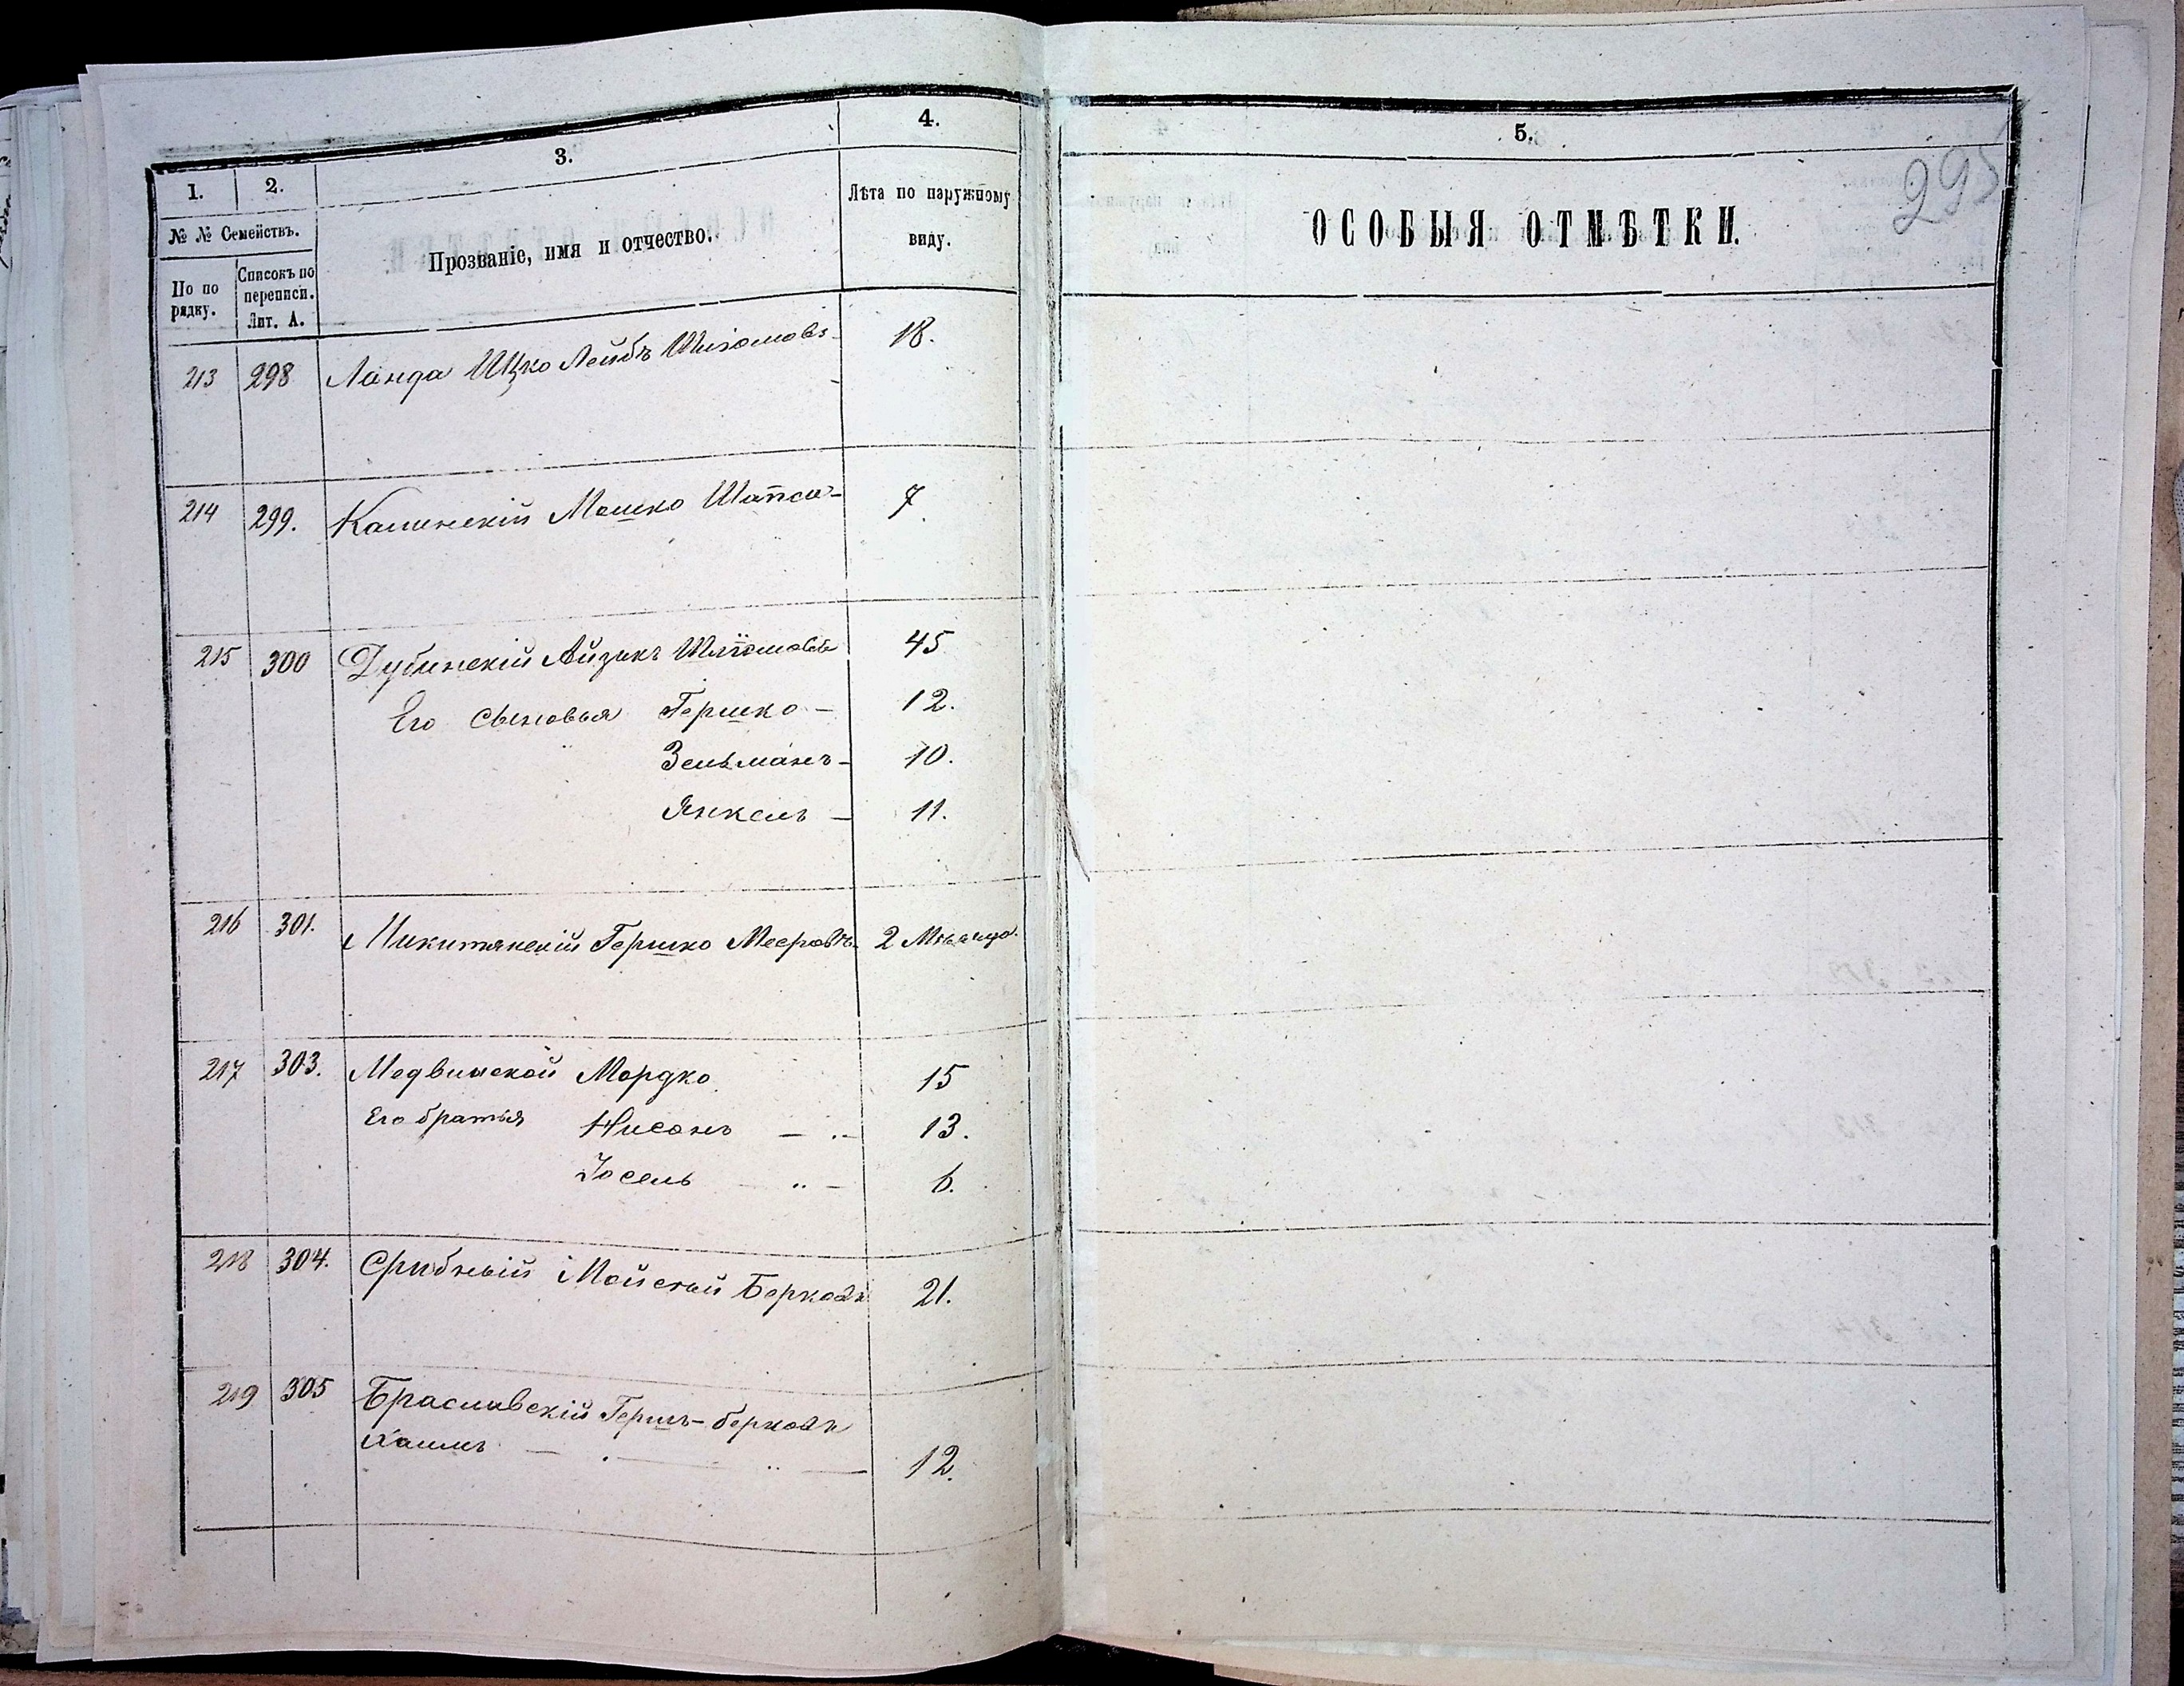 1.
2.
3.
4.
5.
295
№ № Семействъ.
По по
рядку.
Списокъ по
переписи.
Лит. А.
Прозваніе, имя и отчество.
Лѣта по наружному
виду.
ОСОБЫЯ ОТМѢТКИ.
213 298 Ланда Ицко Лейбъ Шліомовъ 18.
214 299. Каминскій Мошко Шапси- 7
215 300 Дубинскій Айзикъ Шліомовъ 45
Его сыновья Гершко - 12.
Зельманъ - 10.
Янкель - 11.
216 301. Микитянскій Гершко Мееровъ 2 Мѣсяца.
217 303. Медвинской Мордко 15
Его братья Нисонъ - 13.
Іосель - 6.
218 304. Срибный Мойсей Берковъ 21.
219 305 Браславскій Герш-берковъ
Хаимъ - 12.